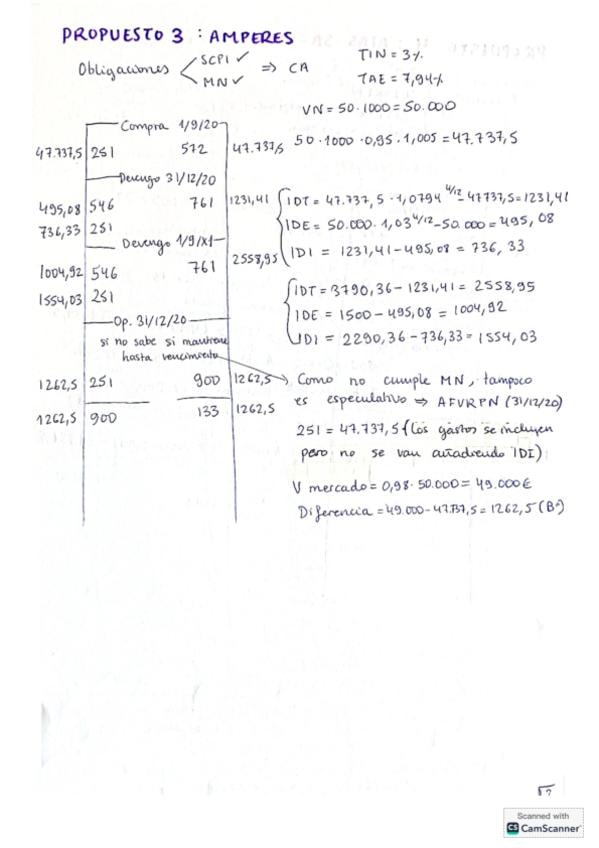 PROPUESTO 3 : AMPERES
Obligaciones < SCPI ✓ MN ✓ ⇒ CA
TIN = 3%
TAE = 7,94%
VN = 50·1000 = 50.000
Compra 1/9/20
47.737,5 251 572 47.737,5
50·1000·0,95·1,005 = 47.737,5
Devengo 31/12/20
495,08 546 761 1231,41
736,33 251
IDT = 47.737,5·1,0794^4/12 - 47737,5 = 1231,41
IDE = 50.000·1,03^4/12 - 50.000 = 495,08
IDI = 1231,41 - 495,08 = 736,33
Devengo 1/9/X1
1004,92 546 761 2558,95
1554,03 251
IDT = 3790,36 - 1231,41 = 2558,95
IDE = 1500 - 495,08 = 1004,92
IDI = 2290,36 - 736,33 = 1554,03
Op. 31/12/20
si no sabe si mantiene
hasta vencimiento
1262,5 251 900 1262,5
1262,5 900 133 1262,5
Como no cumple MN, tampoco
es especulativo ⇒ AFVRPN (31/12/20)
251 = 47.737,5 (los gastos se incluyen
pero no se van añadiendo IDI)
V mercado = 0,98·50.000 = 49.000€
Diferencia = 49.000 - 47.737,5 = 1262,5 (Bº)
Scanned with
CS CamScanner